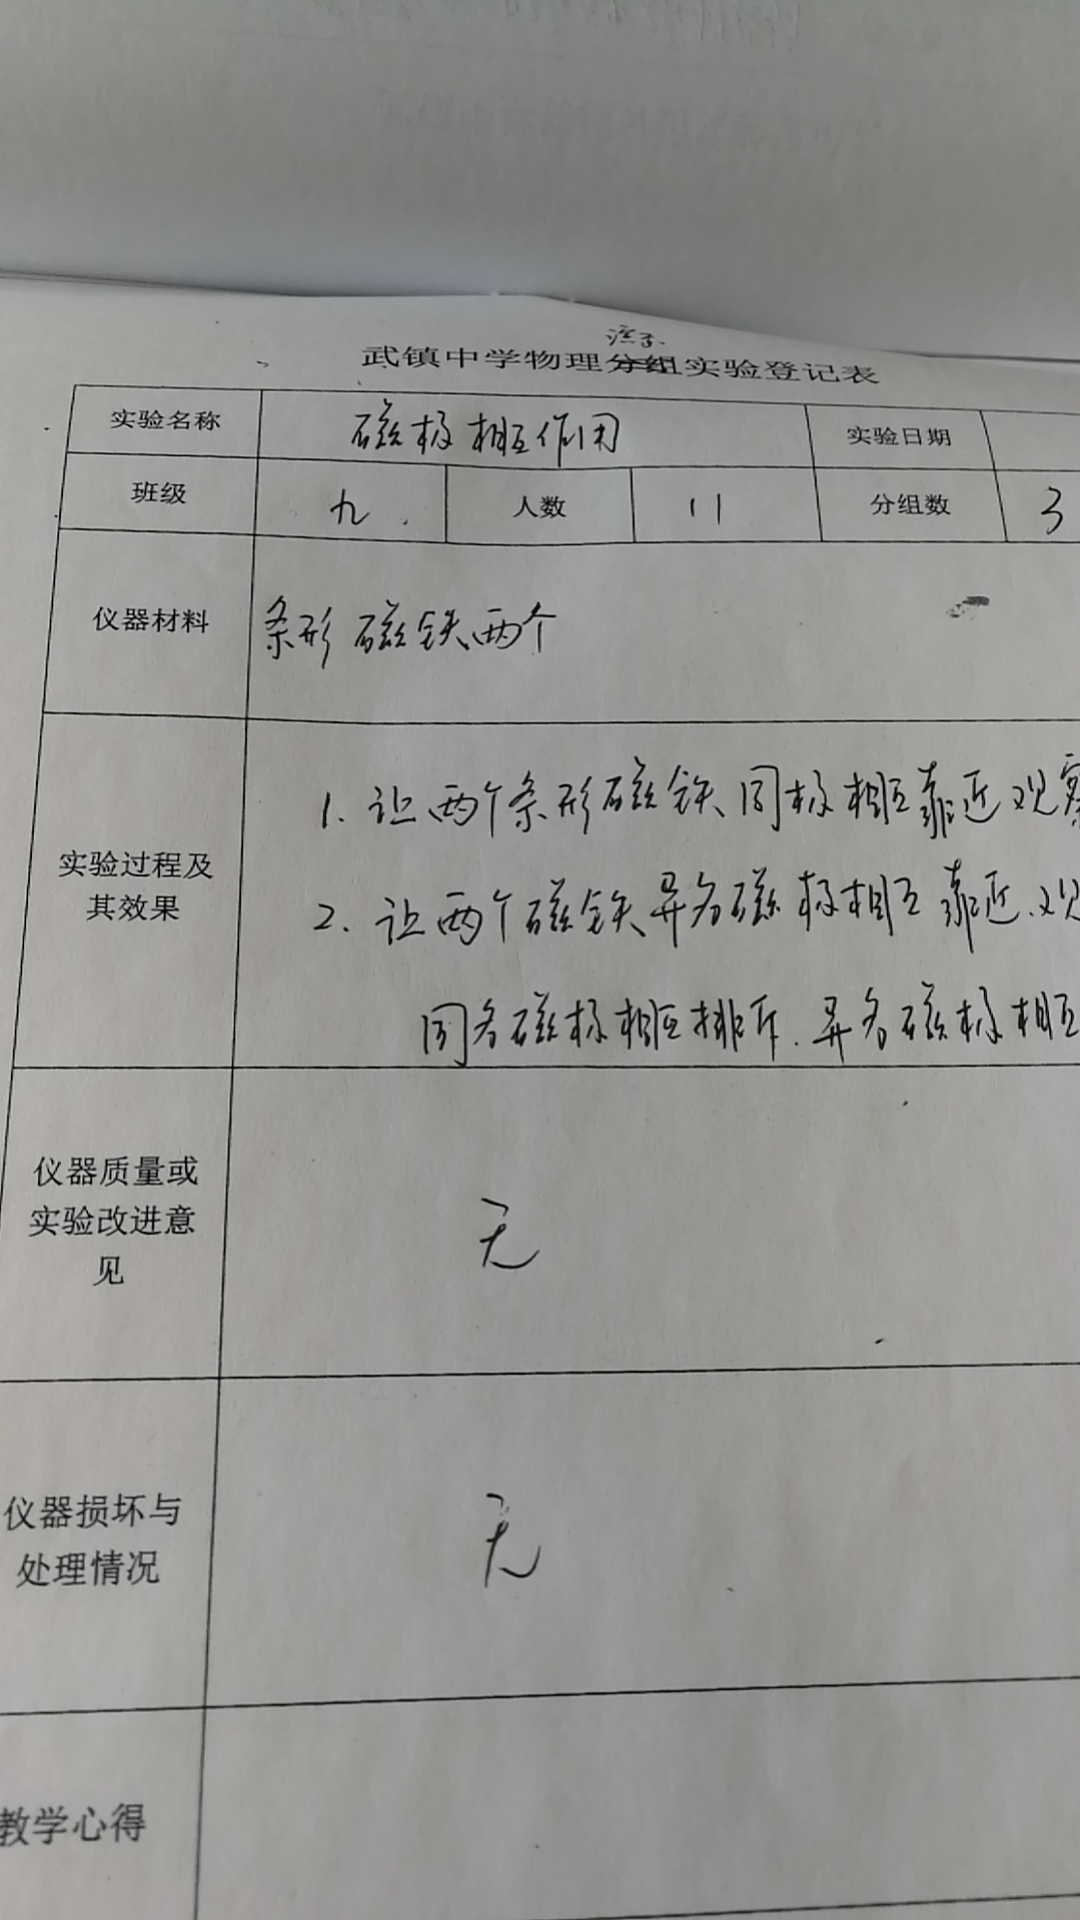 演示
武镇中学物理分组实验登记表
实验名称 磁极相互作用 实验日期
班级 九 人数 11 分组数 3
仪器材料 条形磁铁两个
1. 让两个条形磁铁同极相互靠近观察
实验过程及
其效果
2. 让两个磁铁异名磁极相互靠近.观
同名磁极相互排斥.异名磁极相互
仪器质量或
实验改进意
见
无
仪器损坏与
处理情况
无
教学心得